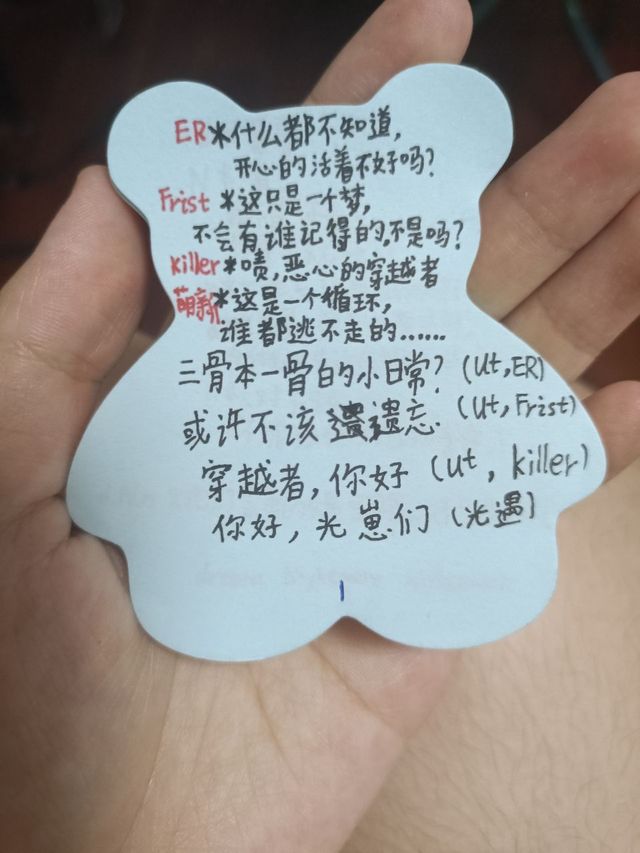 ER*什么都不知道,
开心的活着不好吗?
Frist *这只是一个梦,
不会有谁记得的,不是吗?
killer*啧,恶心的穿越者
萌新*这是一个循环,
谁都逃不走的……
三骨本一骨的小日常? (Ut,ER)
或许不该遗忘 (Ut,Frist)
穿越者,你好 (Ut, killer)
你好,光崽们 (光遇)
1